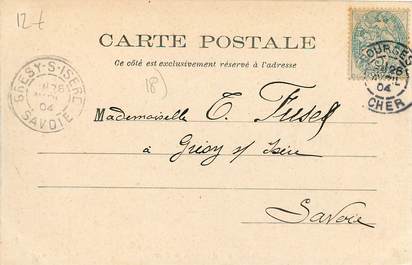 12-t
CARTE POSTALE
Ce côté est exclusivement réservé à l'adresse
18)
GRESY-S-ISERE
26
04
SAVOIE
BOURGES
26
AVRIL
04
CHER
Mademoiselle T. Fusey
à Grésy s/ Isère
Savoie